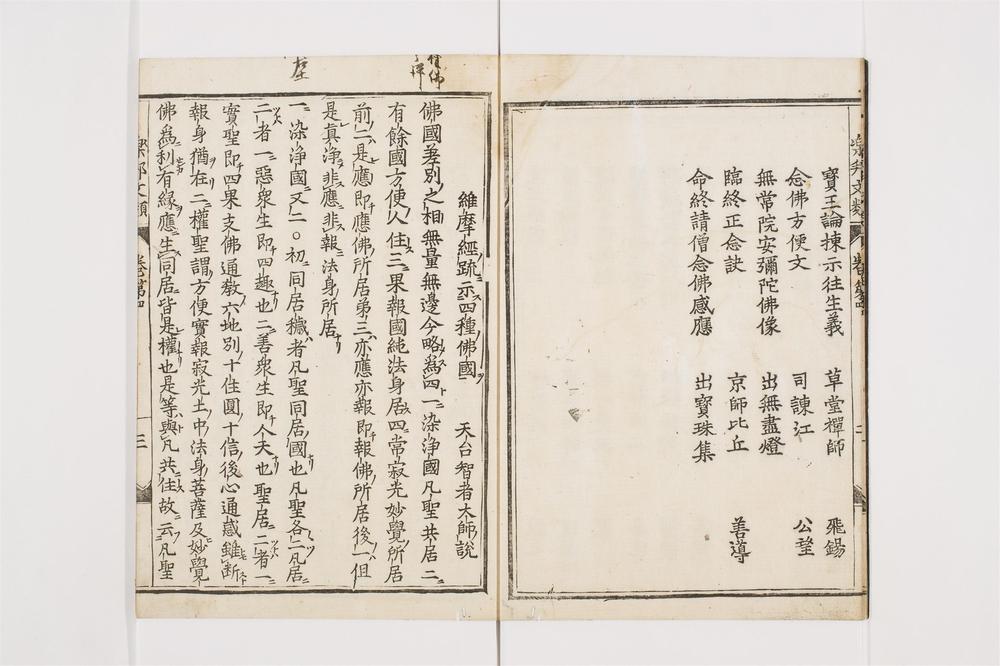 寶王論揀示往生義 草堂禪師 飛錫
念佛方便文 司諫江 公望
無常院安彌陀佛像 出無盡燈
臨終正念訣 京師比丘 善導
命終請僧念佛感應 出寶珠集
維摩經䟽示四種佛國 天台智者大師說
佛國差別之相無量無邊今略爲四一染淨國凡聖共居二
有餘國方便人住三果報國純法身居四常寂光妙覺所居
前二是應即應佛所居第三亦應亦報即報佛所居後一但
是眞淨非應非報法身所居
一染淨國又二〇初同居穢者凡聖同居國也凡聖各二凡居
二者一惡衆生即四趣也二善衆生即人天也聖居二者一
實聖即四果支佛通敎六地別十住圓十信後心通惑雖斷
報身猶在二權聖謂方便實報寂光土中法身菩薩及妙覺
佛爲利有緣應生同居皆是權也是等與凡共住故云凡聖
樂邦文類 卷第四 三